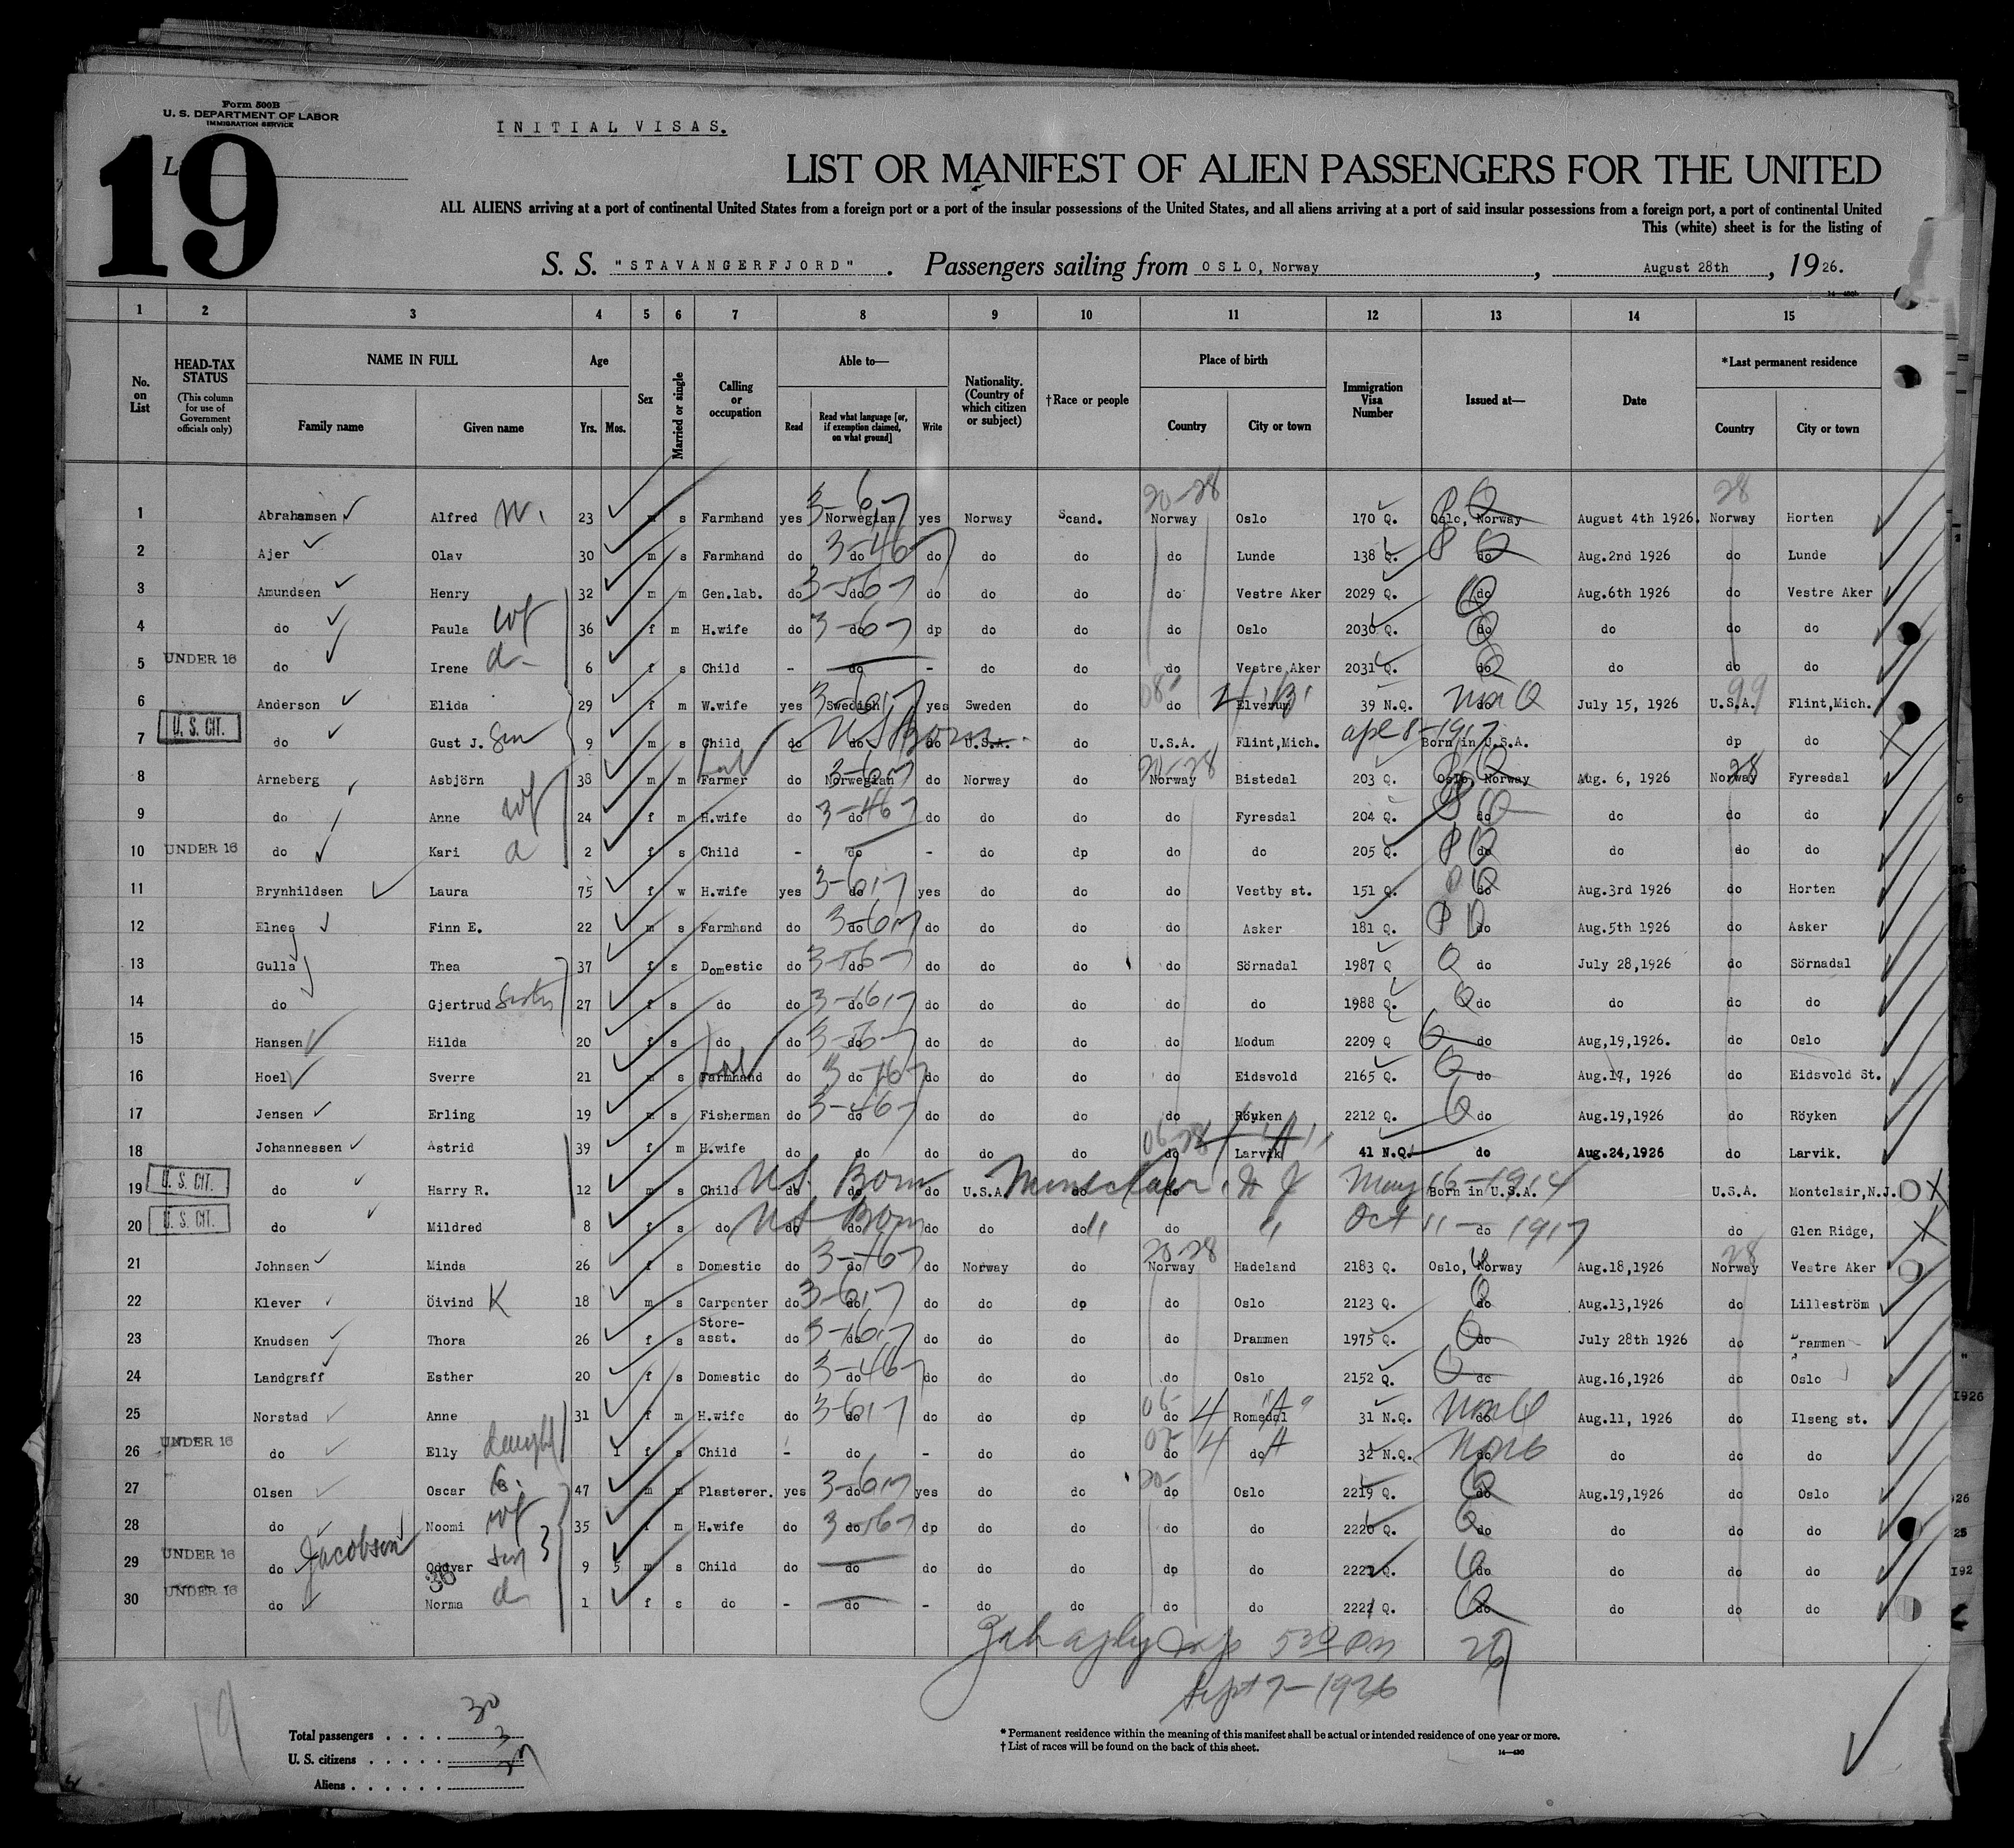 Form 500B
U. S. DEPARTMENT OF LABOR
IMMIGRATION SERVICE
INITIAL VISAS.
19
LIST OR MANIFEST OF ALIEN PASSENGERS FOR THE UNITED
ALL ALIENS arriving at a port of continental United States from a foreign port or a port of the insular possessions of the United States, and all aliens arriving at a port of said insular possessions from a foreign port, a port of continental United
This (white) sheet is for the listing of
S. S. "STAVANGERFJORD". Passengers sailing from OSLO, Norway, August 28th, 1926.
1 2 3 4 5 6 7 8 9 10 11 12 13 14 15
No. on List HEAD-TAX STATUS (This column for use of Government officials only) NAME IN FULL Family name Given name Age Yrs. Mos. Sex Married or single Calling or occupation Able to— Read Read what language [or, if exemption claimed, on what ground] Write Nationality. (Country of which citizen or subject) †Race or people Place of birth Country City or town Immigration Visa Number Issued at— Date *Last permanent residence Country City or town
1 Abrahamsen Alfred W. 23 m s Farmhand yes Norwegian yes Norway Scand. Norway Oslo 170 Q. Oslo, Norway August 4th 1926. Norway Horten
2 Ajer Olav 30 m s Farmhand do do do do do do Lunde 138 Q. do Aug.2nd 1926 do Lunde
3 Amundsen Henry 32 m m Gen.lab. do do do do do do Vestre Aker 2029 Q. do Aug.6th 1926 do Vestre Aker
4 do Paula wf 36 f m H.wife do do dp do do do Oslo 2030 Q. do do do do
5 UNDER 16 do Irene d- 6 f s Child - do - do do do Vestre Aker 2031 Q. do do do do
6 Anderson Elida 29 f m W.wife yes Swedish yes Sweden do do Elverum 39 N.Q. Non Q July 15, 1926 U.S.A. Flint,Mich.
7 U. S. CIT. do Gust J. Son 9 m s Child do do do US Born U.S.A. do U.S.A. Flint,Mich. apl 8-1917 Born in U.S.A. dp do
8 Arneberg Asbjörn 38 m m Farmer do Norwegian do Norway do Norway Bistedal 203 Q. Oslo Norway Aug. 6, 1926 Norway Fyresdal
9 do Anne wf 24 f m H.wife do do do do do do Fyresdal 204 Q. do do do do
10 UNDER 16 do Kari d 2 f s Child - do - do dp do do 205 Q. do do do do
11 Brynhildsen Laura 75 f w H.wife yes do yes do do do Vestby st. 151 Q. do Aug.3rd 1926 do Horten
12 Elnes Finn E. 22 m s Farmhand do do do do do do Asker 181 Q. do Aug.5th 1926 do Asker
13 Gulla Thea 37 f s Domestic do do do do do do Sörnadal 1987 Q do July 28,1926 do Sörnadal
14 do Gjertrud Sister 27 f s do do do do do do do do 1988 Q. do do do do
15 Hansen Hilda 20 f s do do do do do do do Modum 2209 Q do Aug,19,1926. do Oslo
16 Hoel Sverre 21 m s Farmhand do do do do do do Eidsvold 2165 Q. do Aug.17, 1926 do Eidsvold St.
17 Jensen Erling 19 m s Fisherman do do do do do do Röyken 2212 Q. do Aug.19,1926 do Röyken
18 Johannessen Astrid 39 f m H.wife do do do do do do Larvik 41 N.Q. do Aug.24,1926 do Larvik.
19 U. S. CIT. do Harry R. 12 m s Child do do do US. Born U.S.A. do do Montclair N J May 16-1914 Born in U.S.A. U.S.A. Montclair,N.J.
20 U. S. CIT. do Mildred 8 f s do do do do US Born do do do " Oct 11-1917 do do Glen Ridge,
21 Johnsen Minda 26 f s Domestic do do do Norway do Norway Hadeland 2183 Q. Oslo, Norway Aug.18,1926 Norway Vestre Aker
22 Klever Öivind K 18 m s Carpenter do do do do dp do Oslo 2123 Q. do Aug.13,1926 do Lilleström
23 Knudsen Thora 26 f s Store-asst. do do do do do do Drammen 1975 Q. do July 28th 1926 do Drammen
24 Landgraff Esther 20 f s Domestic do do do do do do Oslo 2152 Q. do Aug.16,1926 do Oslo
25 Norstad Anne 31 f m H.wife do do do do dp do Romedal 31 N.Q. do Aug.11, 1926 do Ilseng st.
26 UNDER 16 do Elly daught 1 f s Child - do - do do do do 32 N.Q. do do do do
27 Olsen Oscar 47 m m Plasterer. yes do yes do do do Oslo 2219 Q. do Aug.19,1926 do Oslo
28 do Noomi wf 35 f m H.wife do do dp do do do do 2220 Q. do do do do
29 UNDER 16 do Jacobsen Oddvar son 9 5 m s Child do do do do do dp do 2221 Q. do do do do
30 UNDER 16 do Norma d 1 f s do - do - do do do do 2222 Q. do do do do
Sept 7-1926
19
Total passengers . . . . 30
U. S. citizens . . . . . 3
Aliens . . . . . .
* Permanent residence within the meaning of this manifest shall be actual or intended residence of one year or more.
† List of races will be found on the back of this sheet.